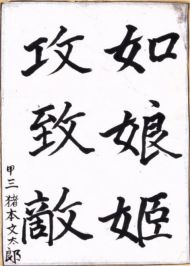 如娘姫
攻致敵
甲三 猪本文太郎